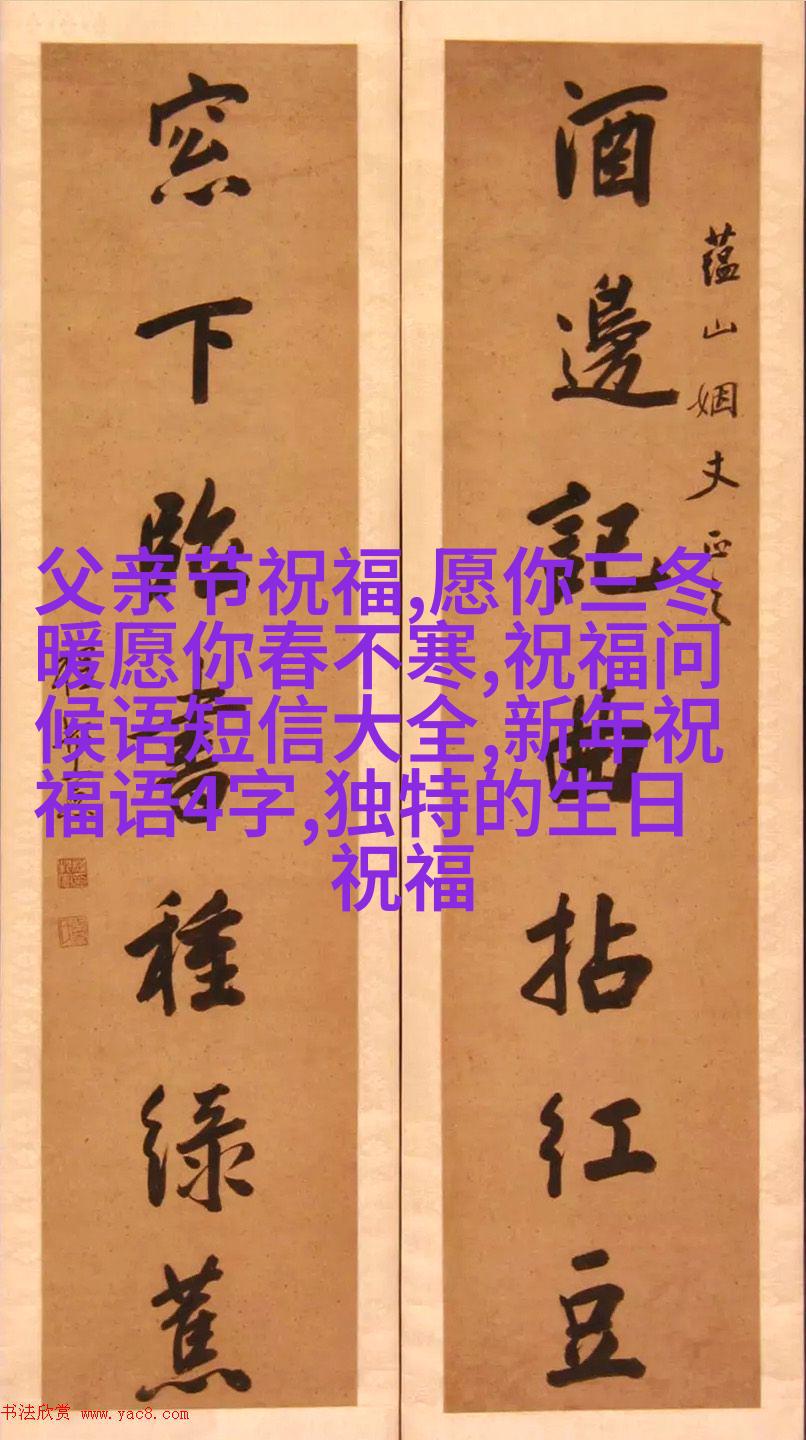 酒邊記曲拈紅豆
蕴山姻丈正之
窓下臨書種綠蕉
父亲节祝福,愿你三冬
暖愿你春不寒,祝福问
候语短信大全,新年祝
福语4字,独特的生日
祝福
书法欣赏 www.yac8.com